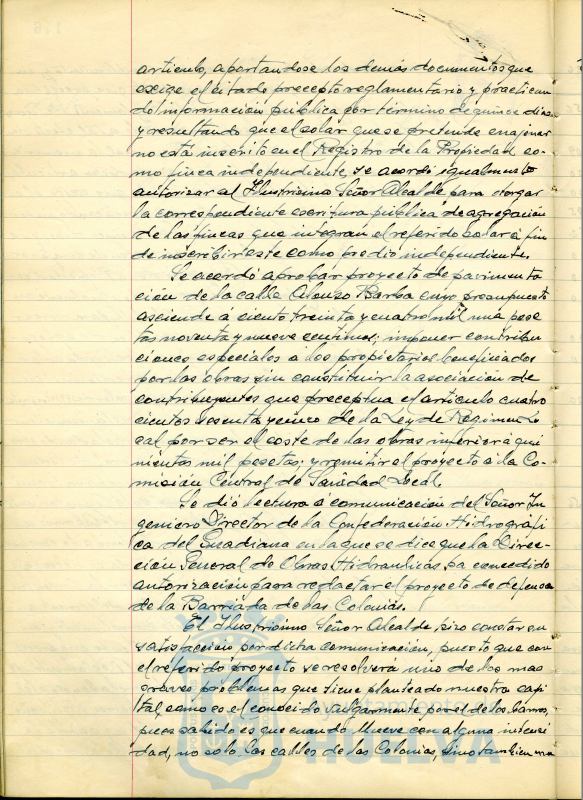 articulo, aportandose los demás documentos que
exige el citado precepto reglamentario y practican
do información pública por término de quince dias
y resultando que el solar que se pretende enajenar
no está inscrito en el Registro de la Propiedad co-
mo finca independiente, se acordó igualmente
autorizar al Ilustrisimo Señor Alcalde para otorgar
la correspondiente escritura pública de agregación
de las fincas que integran el referido solar á fin
de inscribir este como predio independiente.
Se acordó aprobar proyecto de pavimenta
ción de la calle Alonso Barba cuyo presupuesto
asciende a ciento treinta y cuatro mil una pese
tas noventa y nueve centimos; imponer contribu
ciones especiales á los propietarios beneficiados
por las obras sin constituir la asociación de
contribuyentes que preceptua el articulo cuatro
cientos sesenta y cinco de la Ley de Regimen Lo
cal por ser el coste de las obras inferior á qui
nientas mil pesetas; y remitir el proyecto á la Co-
misión Central de Sanidad Local.
Se dió lectura á comunicación del Señor In
geniero Director de la Confederación Hidrográfi
ca del Guadiana en la que se dice que la Direc-
ción General de Obras Hidraulicas ha concedido
autorización para redactar el proyecto de defensa
de la Barriada de las Colonias.
El Ilustrisimo Señor Alcalde hizo constar su
satisfacción por dicha comunicación, puesto que con
el referido proyecto se resolverá uno de los mas
graves problemas que tiene planteado nuestra capi
tal, como es el conocido vulgarmente por el de los barros,
pues sabido es que cuando llueve con alguna intensi
dad, no solo las calles de las Colonias, sino tambien una
Ayuntamiento de
HUELVA